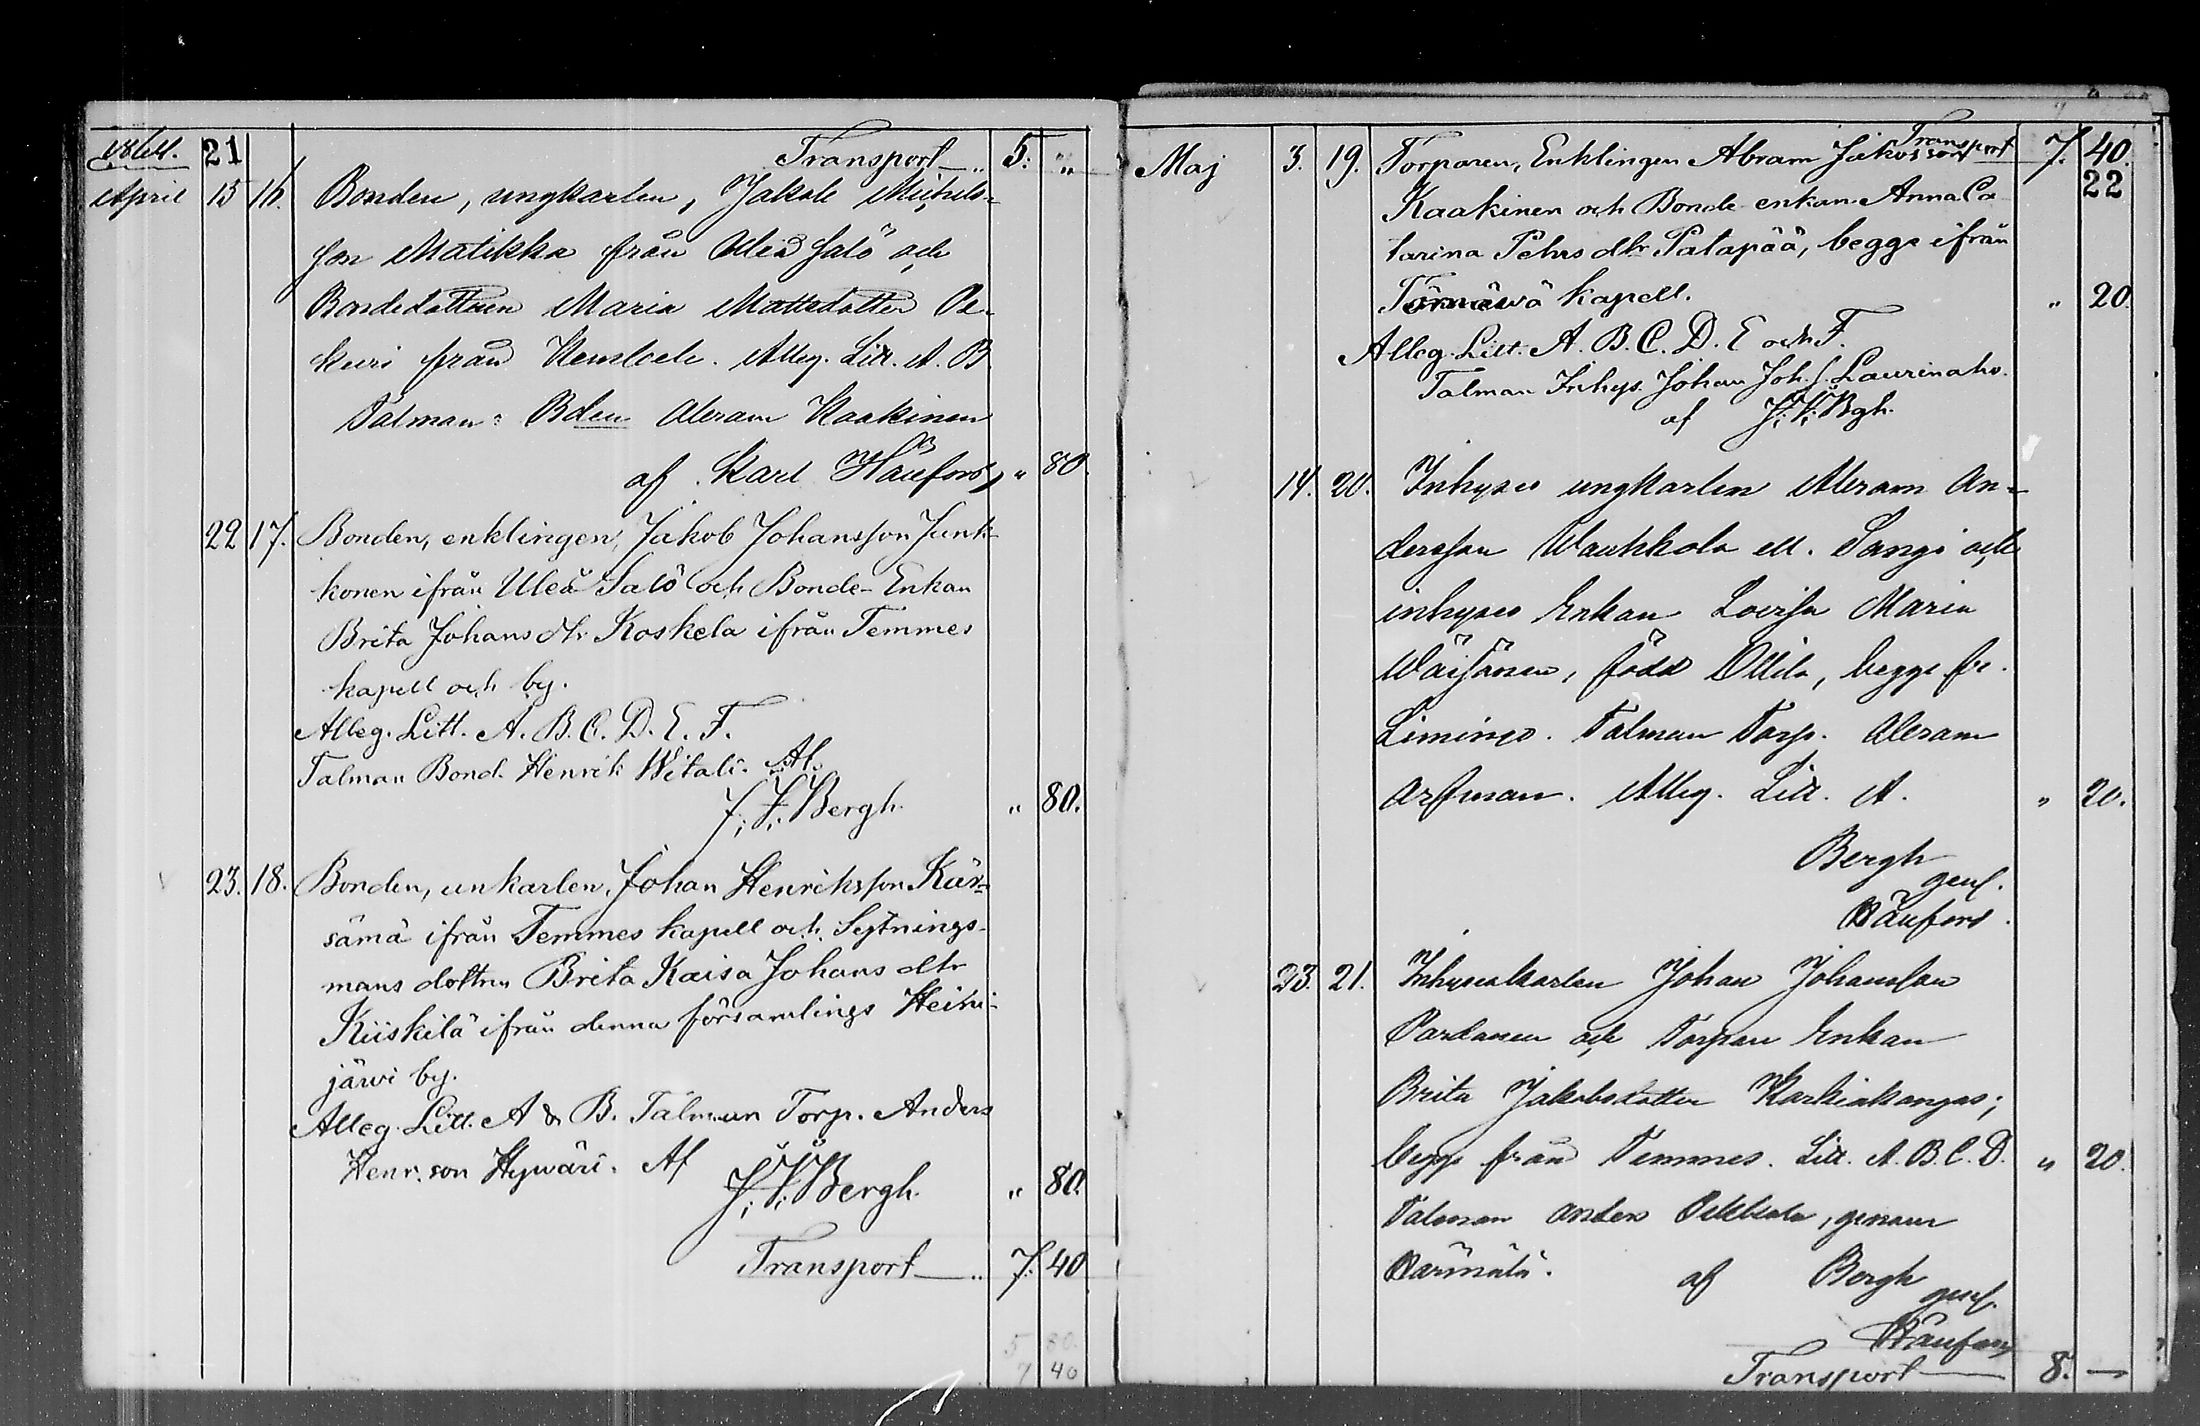 1864. 21 Transport 5. "
April 15 16. Bonden, ungkarlen, Jakob Michels-
son Matikka från Uleå Salö och
Bondedottren Maria Mattsdotter
från Kembele. Alleg. Litt. A. B.
Talman: Bden Abram Kaakinen
af Karl " 80.
22 17. Bonden, enklingen, Jakob Johansson Junk-
konen ifrån Uleå Salö och Bonde-Enkan
Brita Johans dtr Koskela ifrån Temmes
kapell och by.
Alleg. Litt. A. B. C. D. E. F.
Talman Bond. Henrik Witali. Af.
J. V. Bergh. " 80.
23. 18. Bonden, unkarlen, Johan Henriksson Kär-
sämä ifrån Temmes kapell och Sytnings-
mans dottren Brita Kaisa Johans dtr
Kiiskilä ifrån denna församlings Heini-
järvi by.
Alleg. Litt. A & B. Talman Torp. Anders
Henr. son Hywäri. Af
J. V. Bergh. " 80.
Transport 7. 40
5 80.
7 40
Transport 7. 40.
22
Maj 3. 19. Torparen, Enklingen Abram Jakobsson
Kaakinen och Bonde enkan Anna Ca
tarina Pehrs dtr Patapää, begge ifrån
Törnäwä kapell. " 20.
Alleg. Litt. A. B. C. D. E och F.
Talman Inhys. Johan Joh. s. Laurinaho.
af J. V. Bgh.
14. 20. Inhyses ungkarlen Abram An-
dersson Waukkola ell. Sangi och
inhyses Enkan Lovisa Maria
Wäisänen, född Ollila, begge fr.
Limingo. Talman Torp. Abram
Arfman. Alleg. Litt. A. " 20.
Bergh
gen.
23. 21. Inhyseskarlen Johan Johansson
Pardanen och Torpare Enkan
Brita Jakobsdotter Karhiakangas;
begge från Temmes. Litt. A. B. C. D. " 20.
Talman Anders Pekkala, genom
Härmälä. af Bergh
gen.
Transport 8. —